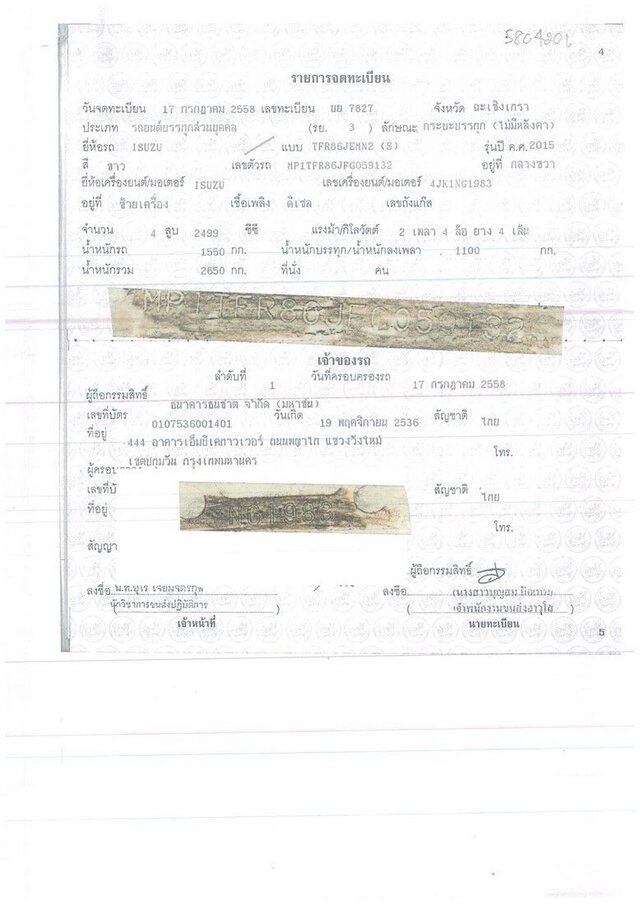 5804201
4
รายการจดทะเบียน
วันจดทะเบียน 17 กรกฎาคม 2558 เลขทะเบียน ผย 7827 จังหวัด ฉะเชิงเทรา
ประเภท รถยนต์บรรทุกส่วนบุคคล (รย. 3 ) ลักษณะ กระบะบรรทุก (ไม่มีหลังคา)
ยี่ห้อรถ ISUZU แบบ TFR86JEMN2 (S) รุ่นปี ค.ศ.2015
สี ขาว เลขตัวรถ MP1TFR86JFG059132 อยู่ที่ กลางขวา
ยี่ห้อเครื่องยนต์/มอเตอร์ ISUZU เลขเครื่องยนต์/มอเตอร์ 4JK1NG1983
อยู่ที่ ซ้ายเครื่อง เชื้อเพลิง ดีเซล เลขถังแก๊ส
จำนวน 4 สูบ 2499 ซีซี แรงม้า/กิโลวัตต์ 2 เพลา 4 ล้อ ยาง 4 เส้น
น้ำหนักรถ 1550 กก. น้ำหนักบรรทุก/น้ำหนักลงเพลา 1100 กก.
น้ำหนักรวม 2650 กก. ที่นั่ง คน
MP1TFR86JFG059132
เจ้าของรถ
ลำดับที่ 1 วันที่ครอบครองรถ 17 กรกฎาคม 2558
ผู้ถือกรรมสิทธิ์ ธนาคารธนชาต จำกัด (มหาชน)
เลขที่บัตร 0107536001401 วันเกิด 19 พฤศจิกายน 2536 สัญชาติ ไทย
ที่อยู่ 444 อาคารเอ็มบีเคทาวเวอร์ ถนนพญาไท แขวงวังใหม่
เขตปทุมวัน กรุงเทพมหานคร โทร.
ผู้ครอบ
เลขที่บั สัญชาติ ไทย
NG1983
ที่อยู่ โทร.
สัญญา
ผู้ถือกรรมสิทธิ์
ลงชื่อ ลงชื่อ
นักวิชาการขนส่งปฏิบัติการ ) เจ้าพนักงานขนส่งอาวุโส )
เจ้าหน้าที่ นายทะเบียน
5